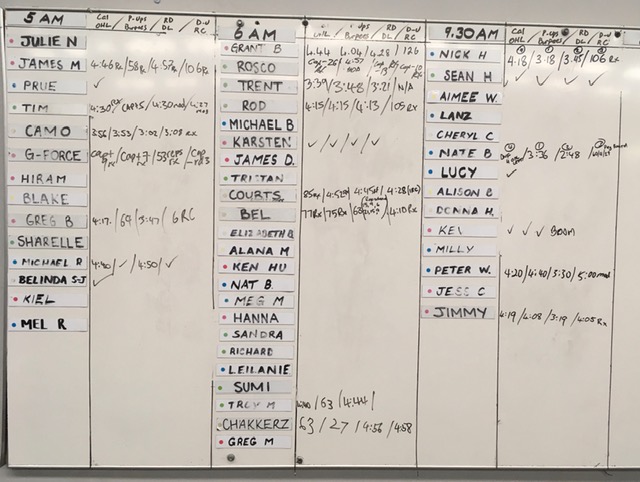 5 AM Cal OHL / P-Ups Burpees / RD DL / D-U RC
JULIE N
JAMES M 4:46Rx / 58Rx / 4:57Rx / 106Rx
PRUE ✓
TIM
CAMO 3:56 / 3:53 / 3:02 / 3:09 Rx
G-FORCE
HIRAM
BLAKE
GREG B 4:17 / 64 / 3:47 / 6 RC
SHARELLE
MICHAEL R 4:40 / ✓ / 4:50 / ✓
BELINDA S-J ✓
KIEL
MEL R
6 AM P-Ups Burpees / RD DL / D-U RC
GRANT B 4.44 4.04 / 4.28 / 126
ROSCO
TRENT 3:39 / 3:48 / 3:21 / N/A
ROD 4:15 / 4:15 / 4:13 / 105 Rx
MICHAEL B
KARSTEN ✓ / ✓ / ✓ / ✓
JAMES D.
TRISTAN
COURTS
BEL 77Rx / 75Rx
ELIZABETH Q
ALANA M
KEN HU
NAT B.
MEG M
HANNA
SANDRA
RICHARD
LEILANIE
SUMI
TROY M / 63 / 4:44 /
CHAKKERZ 63 / 27 / 4:56 / 4:58
GREG M
9.30AM Cal OHL / P-Up Burpees / RD DL / D-U RC
NICK H 4:18 / 3:18 / 3:45 / 106 Rx
SEAN H ✓ ✓ ✓ ✓
AIMEE W.
LANZ
CHERYL C
NATE B / 3:36 / 2:48
LUCY ✓
ALISON B
DONNA H.
KEV ✓ ✓ ✓ BOOM
MILLY
PETER W. 4:20 / 4:40 / 3:30 / 5:00 mod
JESS C
JIMMY 4:19 / 4:08 / 3:19 / 4:05 Rx